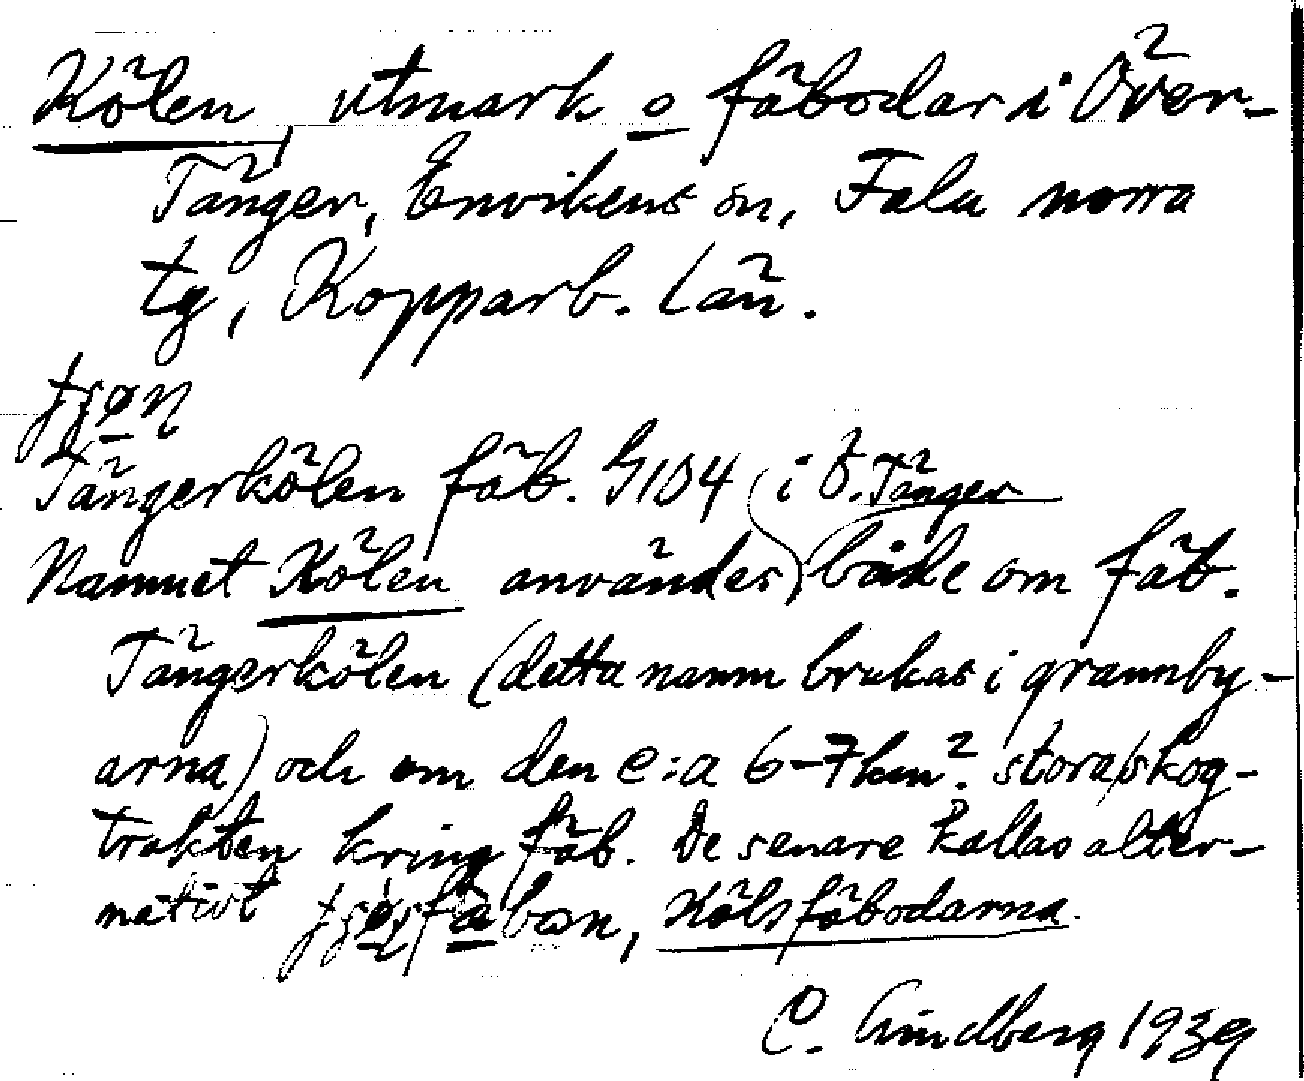 Kölen, utmark o fäbodar i Över-
Tänger, Envikens sn, Falu norra
tg, Kopparb. län.
Tängerkölen fäb. G104 i Ö. Tänger
Namnet Kölen användes både om fäb.
Tängerkölen (detta namn brukas i grannby-
arna) och om den c:a 6-7 km². stora skog-
trakten kring fäb. De senare kallas alter-
nativt Kölsfäbodarna.
C. Lindberg 1939